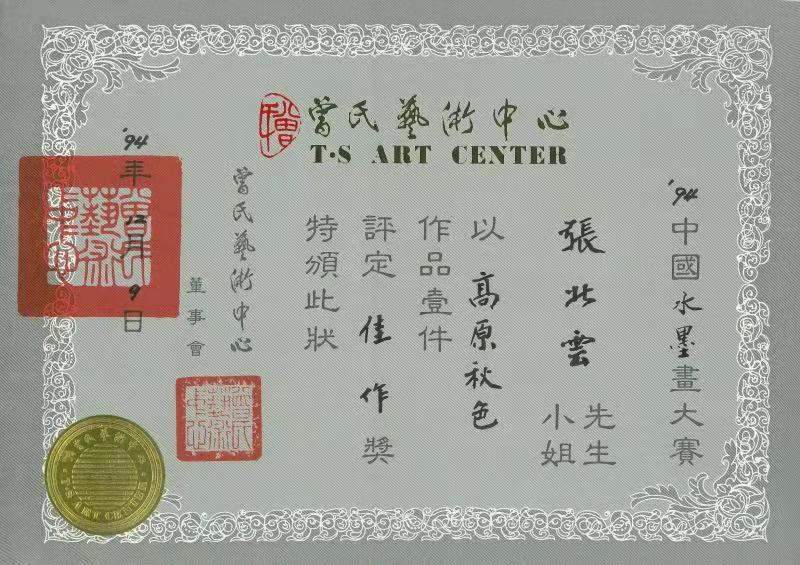 曾氏藝術中心
T·S ART CENTER
'94中國水墨畫大賽
張北雲 先生 小姐
以高原秋色
作品壹件
評定佳作獎
特頒此狀
曾氏藝術中心
董事會
'94年12月9日
T·S ART CENTER